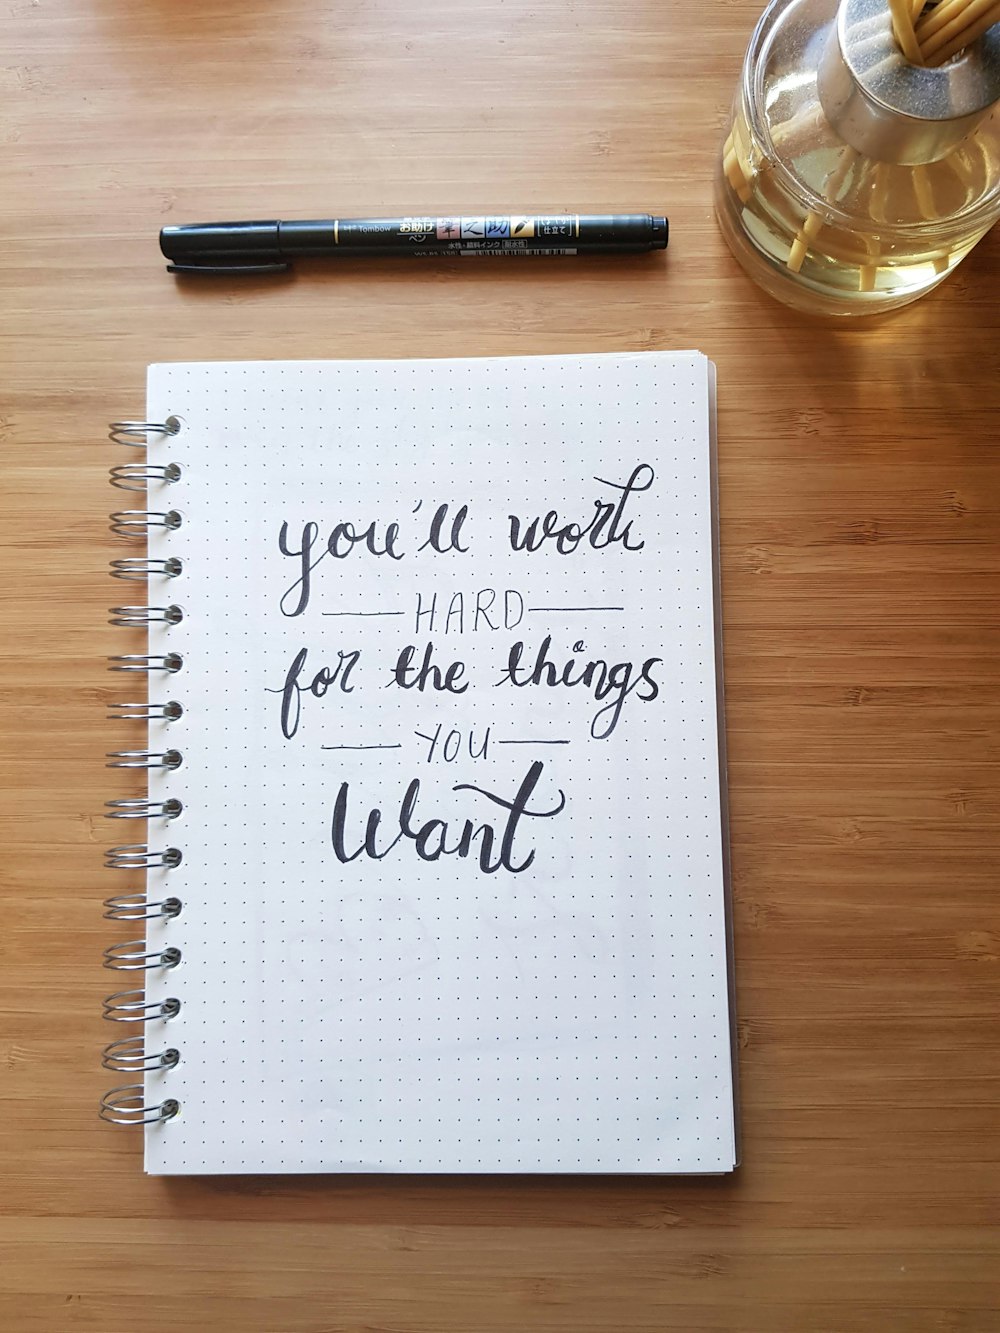 Tombow お助け 筆之助 しっかり仕立て
水性・顔料インク 耐水
you'll work
HARD
for the things
YOU
Want